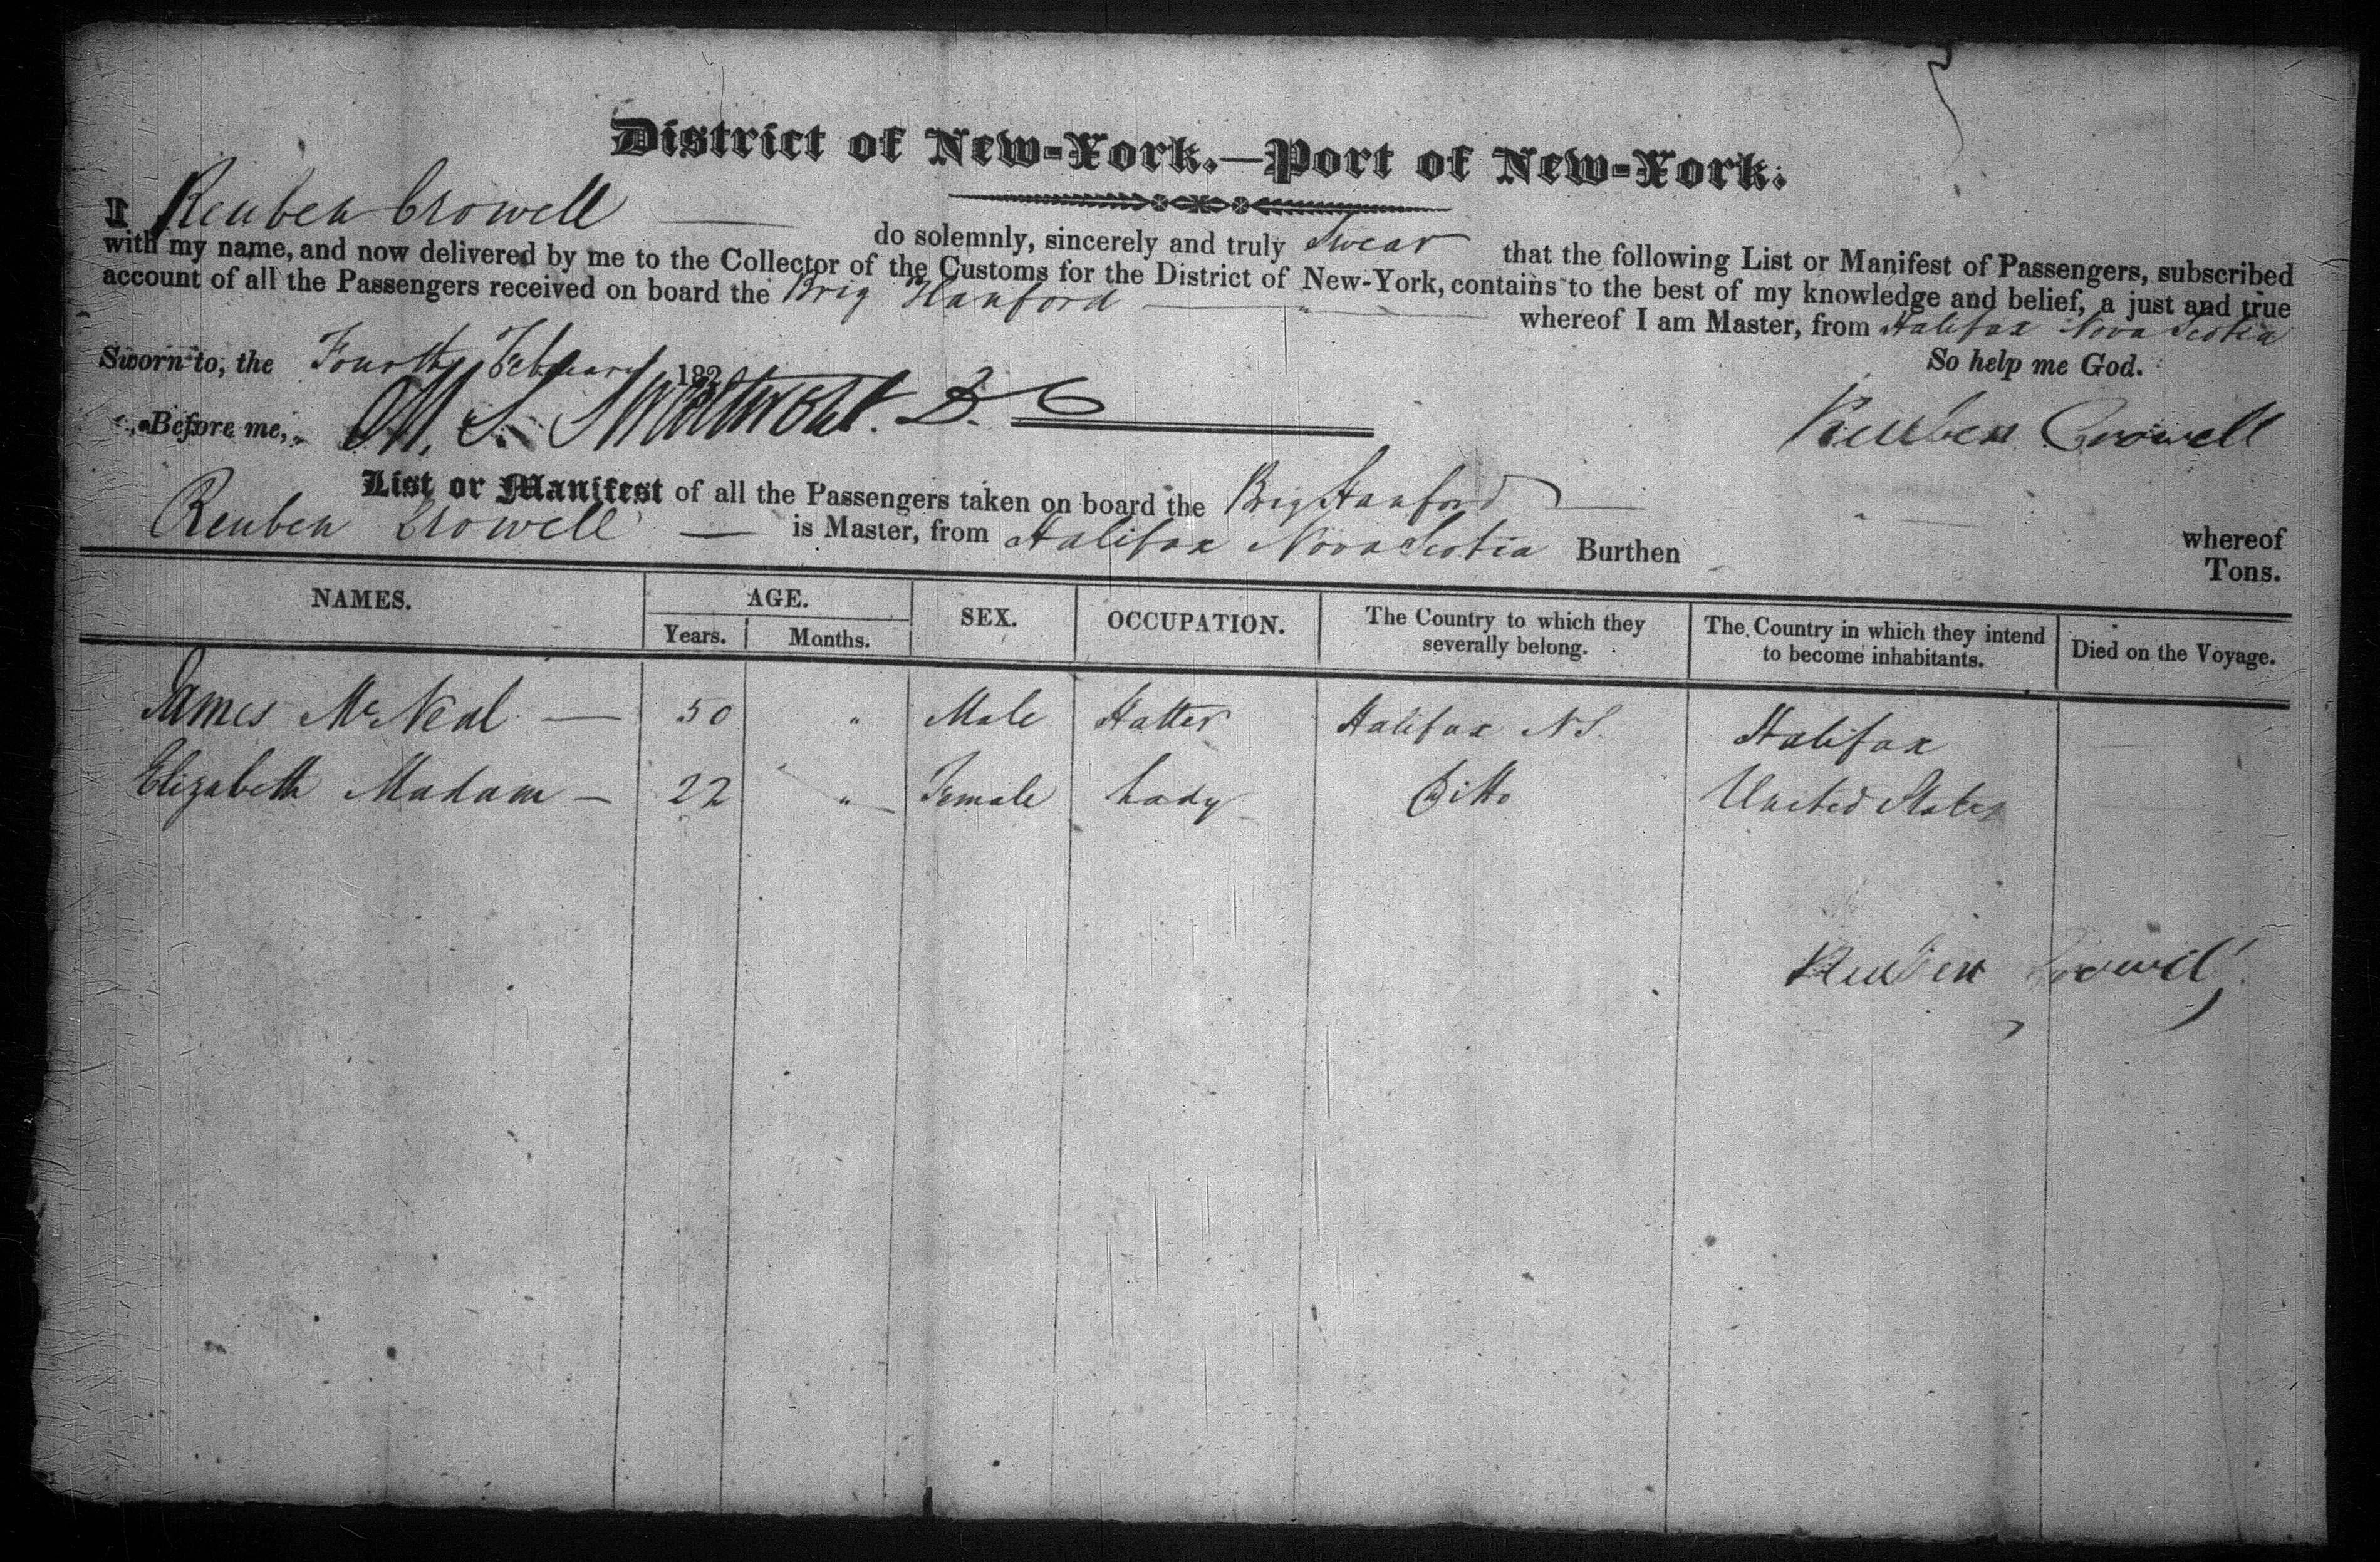 District of New-York.—Port of New-York.
I Reuben Crowell do solemnly, sincerely and truly Swear that the following List or Manifest of Passengers, subscribed
with my name, and now delivered by me to the Collector of the Customs for the District of New-York, contains to the best of my knowledge and belief, a just and true
account of all the Passengers received on board the Brig Hanford whereof I am Master, from Halifax Nova Scotia
Sworn to, the Fourth February 182
So help me God.
Before me, M. S. D. C
Reuben Crowell
List or Manifest of all the Passengers taken on board the Brig Hanford whereof
Reuben Crowell — is Master, from Halifax Nova Scotia Burthen Tons.
NAMES. AGE. SEX. OCCUPATION. The Country to which they severally belong. The Country in which they intend to become inhabitants. Died on the Voyage.
Years. Months.
James McNeal — 50 " Male Hatter Halifax N S. Halifax
Elizabeth Madam — 22 " Female Lady Ditto United States
Reuben Crowell